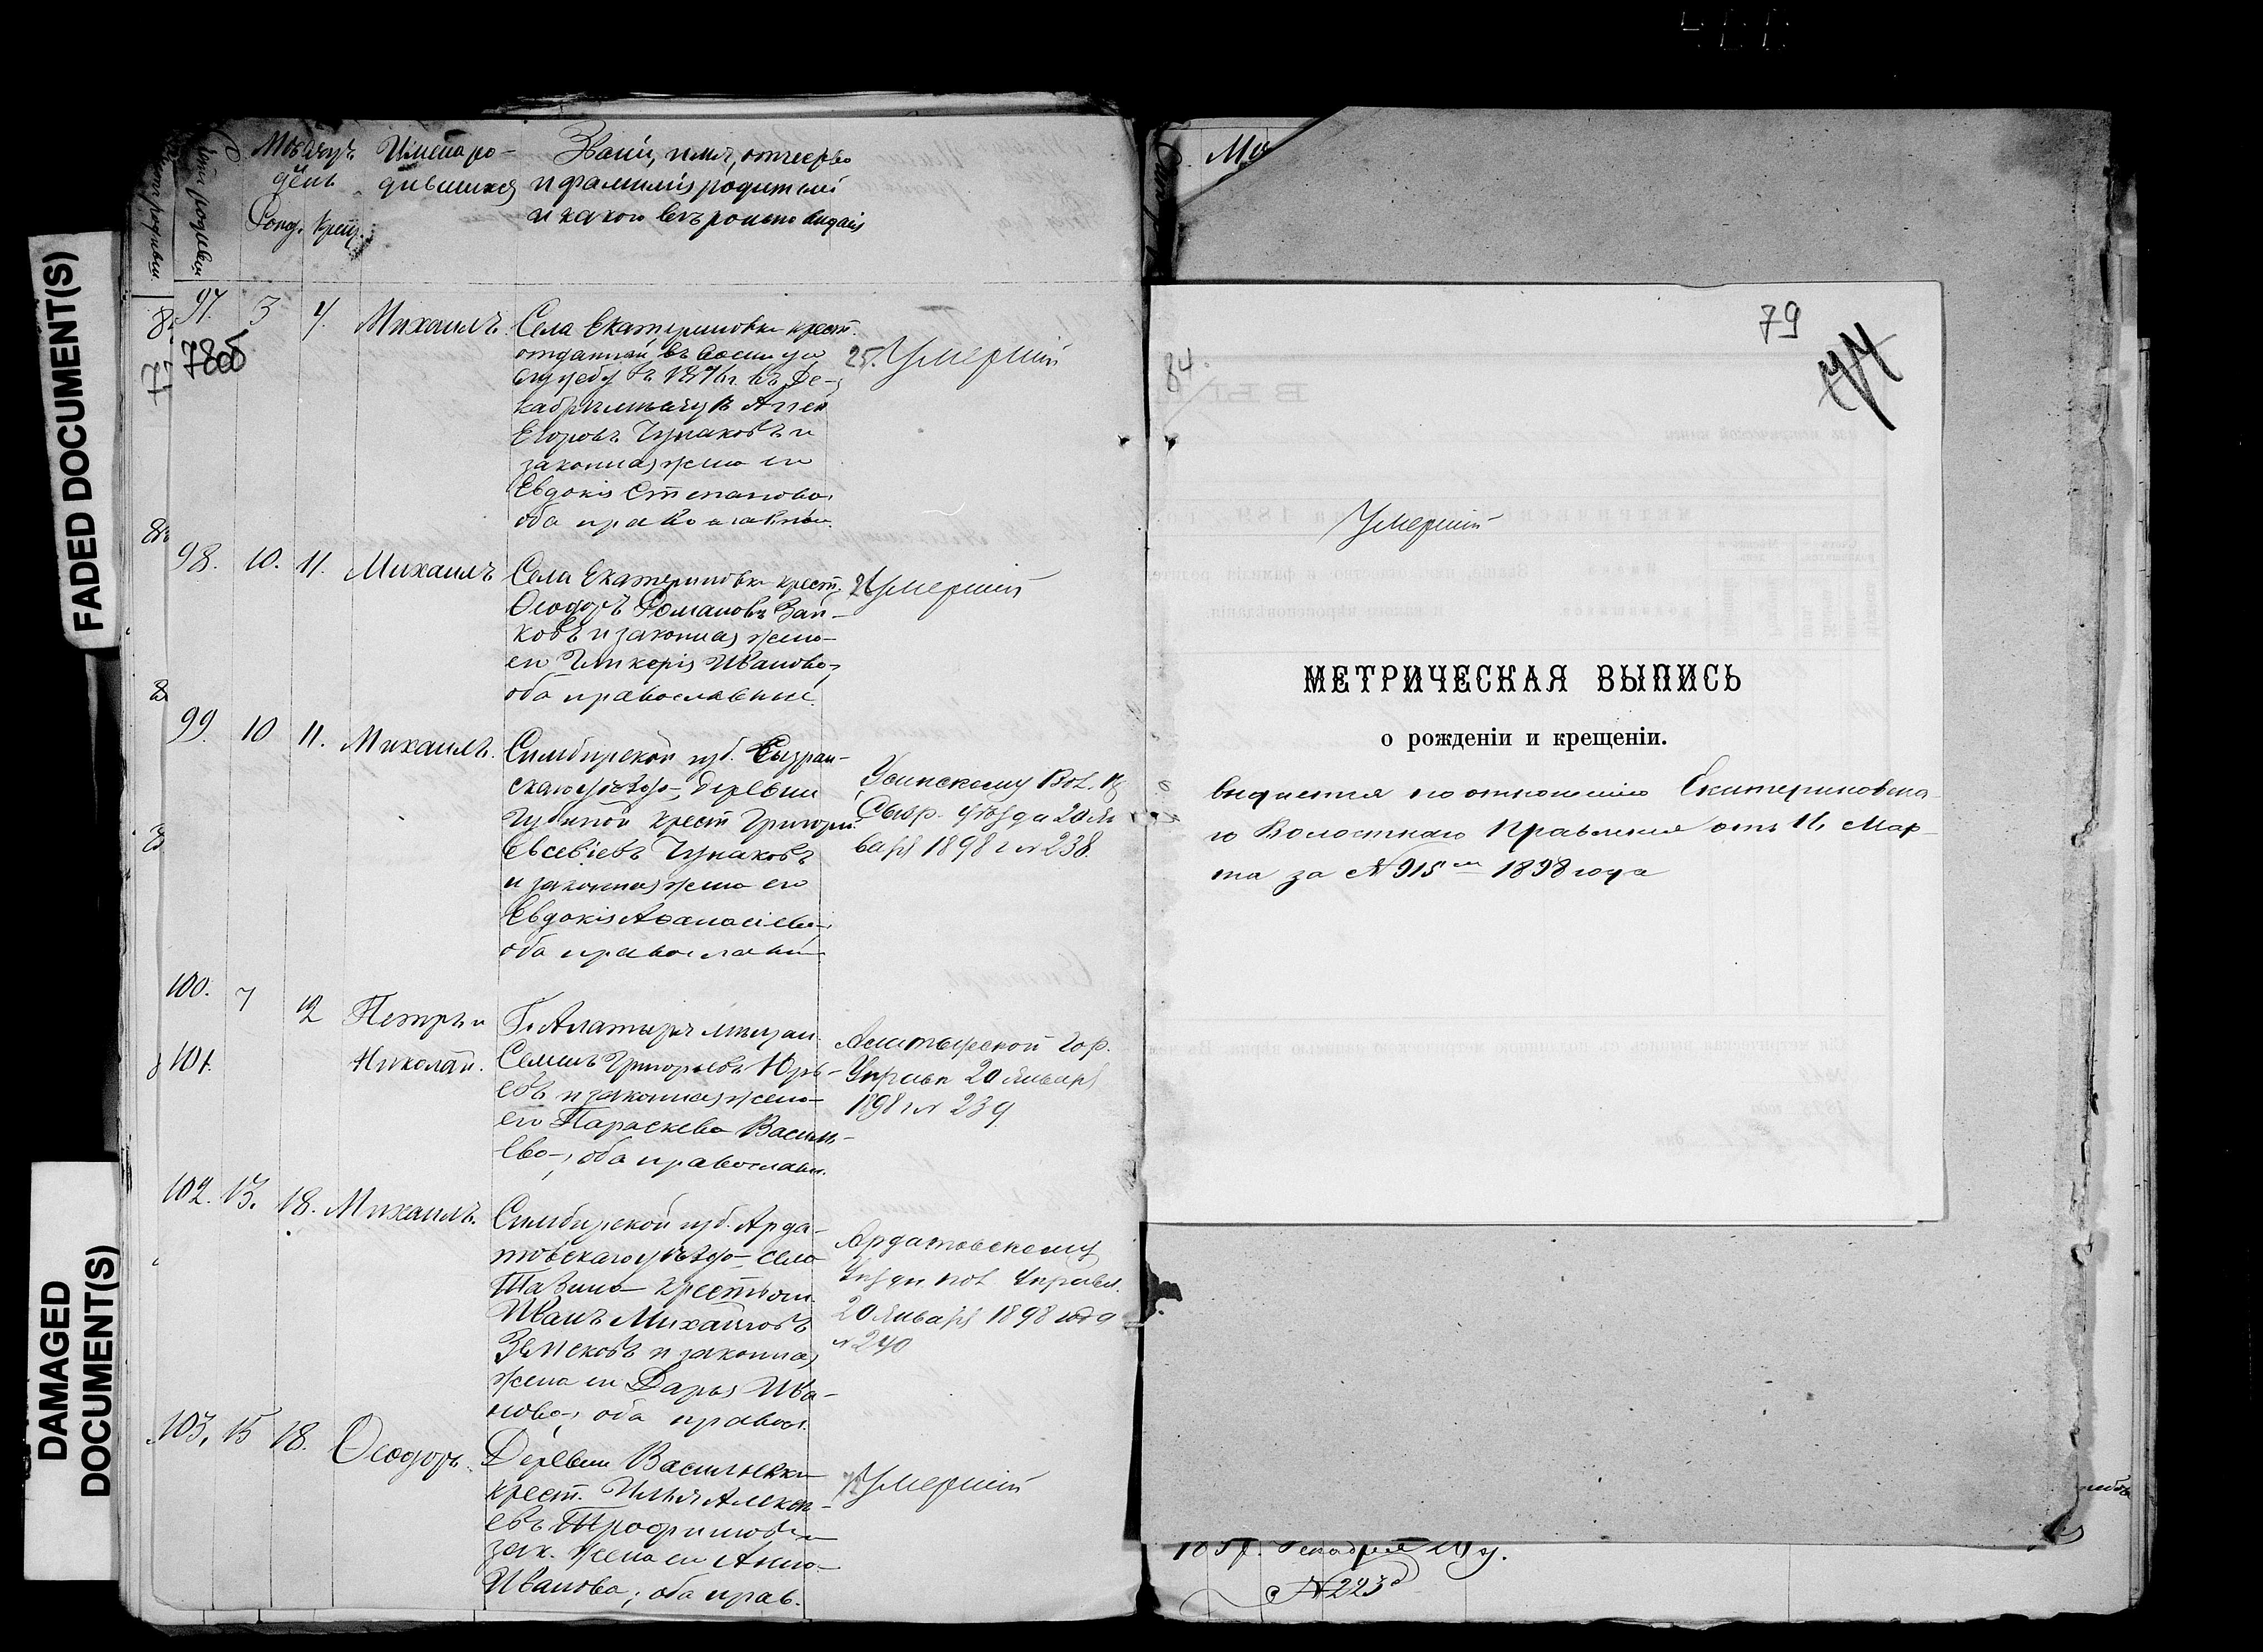 FADED DOCUMENT(S)
DAMAGED DOCUMENT(S)
Мѣсяцъ день
Рожд. Крещ.
Имена родившихся
Званіе, имя, отчество
и фамилія родителей
и какого вѣроисповѣданія
97. 3 4. Михаилъ.
78об
Села Екатериновки крест.
отданный въ военную
службу въ
Егоровъ Чумаковъ и
законная жена его
Евдокія Степанова,
оба православные.
25. Умершій
98. 10. 11. Михаилъ
Села Екатериновки крест.
Ѳеодоръ Романовъ Зай-
ковъ и законная жена
его Гликерія Иванова,
оба православные.
26 Умершій
99. 10 11. Михаилъ.
Симбирской губ. Сызран-
скаго уѣзда, деревни
Губиной крест. Григорій
Евсевіевъ Чумаковъ
и законная жена его
Евдокія Аѳанасіева,
оба православные
Усинскому Вол. Пр.
Сызр. уѣзда 20 Ян
варя 1898 г № 238.
100. 7 12 Петръ и
101. Николай.
Г. Алатыря мѣщан.
Семенъ Григорьевъ Юрь-
евъ и законная жена
его Параскева Василь-
ева, оба православн.
Алатырской Гор.
Управѣ 20 Января
1898 г № 239
102. 13. 18. Михаилъ.
Симбирской губ. Арда-
товскаго уѣзда, села
крестьян.
Иванъ Михайловъ
и законная
жена его Дарья Ива-
нова, оба правосл.
Ардатовскому
Уѣздн. пол. Управл.
20 Января 1898 года
№ 240
103. 15 18. Ѳеодоръ.
Деревни Васильевки
крест. Илья Алексѣ-
евъ Трофимовъ и
зак. жена его Анна
Иванова; оба прав.
Умершій
79
84.
Умершій
МЕТРИЧЕСКАЯ ВЫПИСЬ
о рожденіи и крещеніи.
выдается по отношенію Екатериновска
го Волостнаго Правленія отъ 11 Мар-
та за № 915 м 1898 года
№ 223